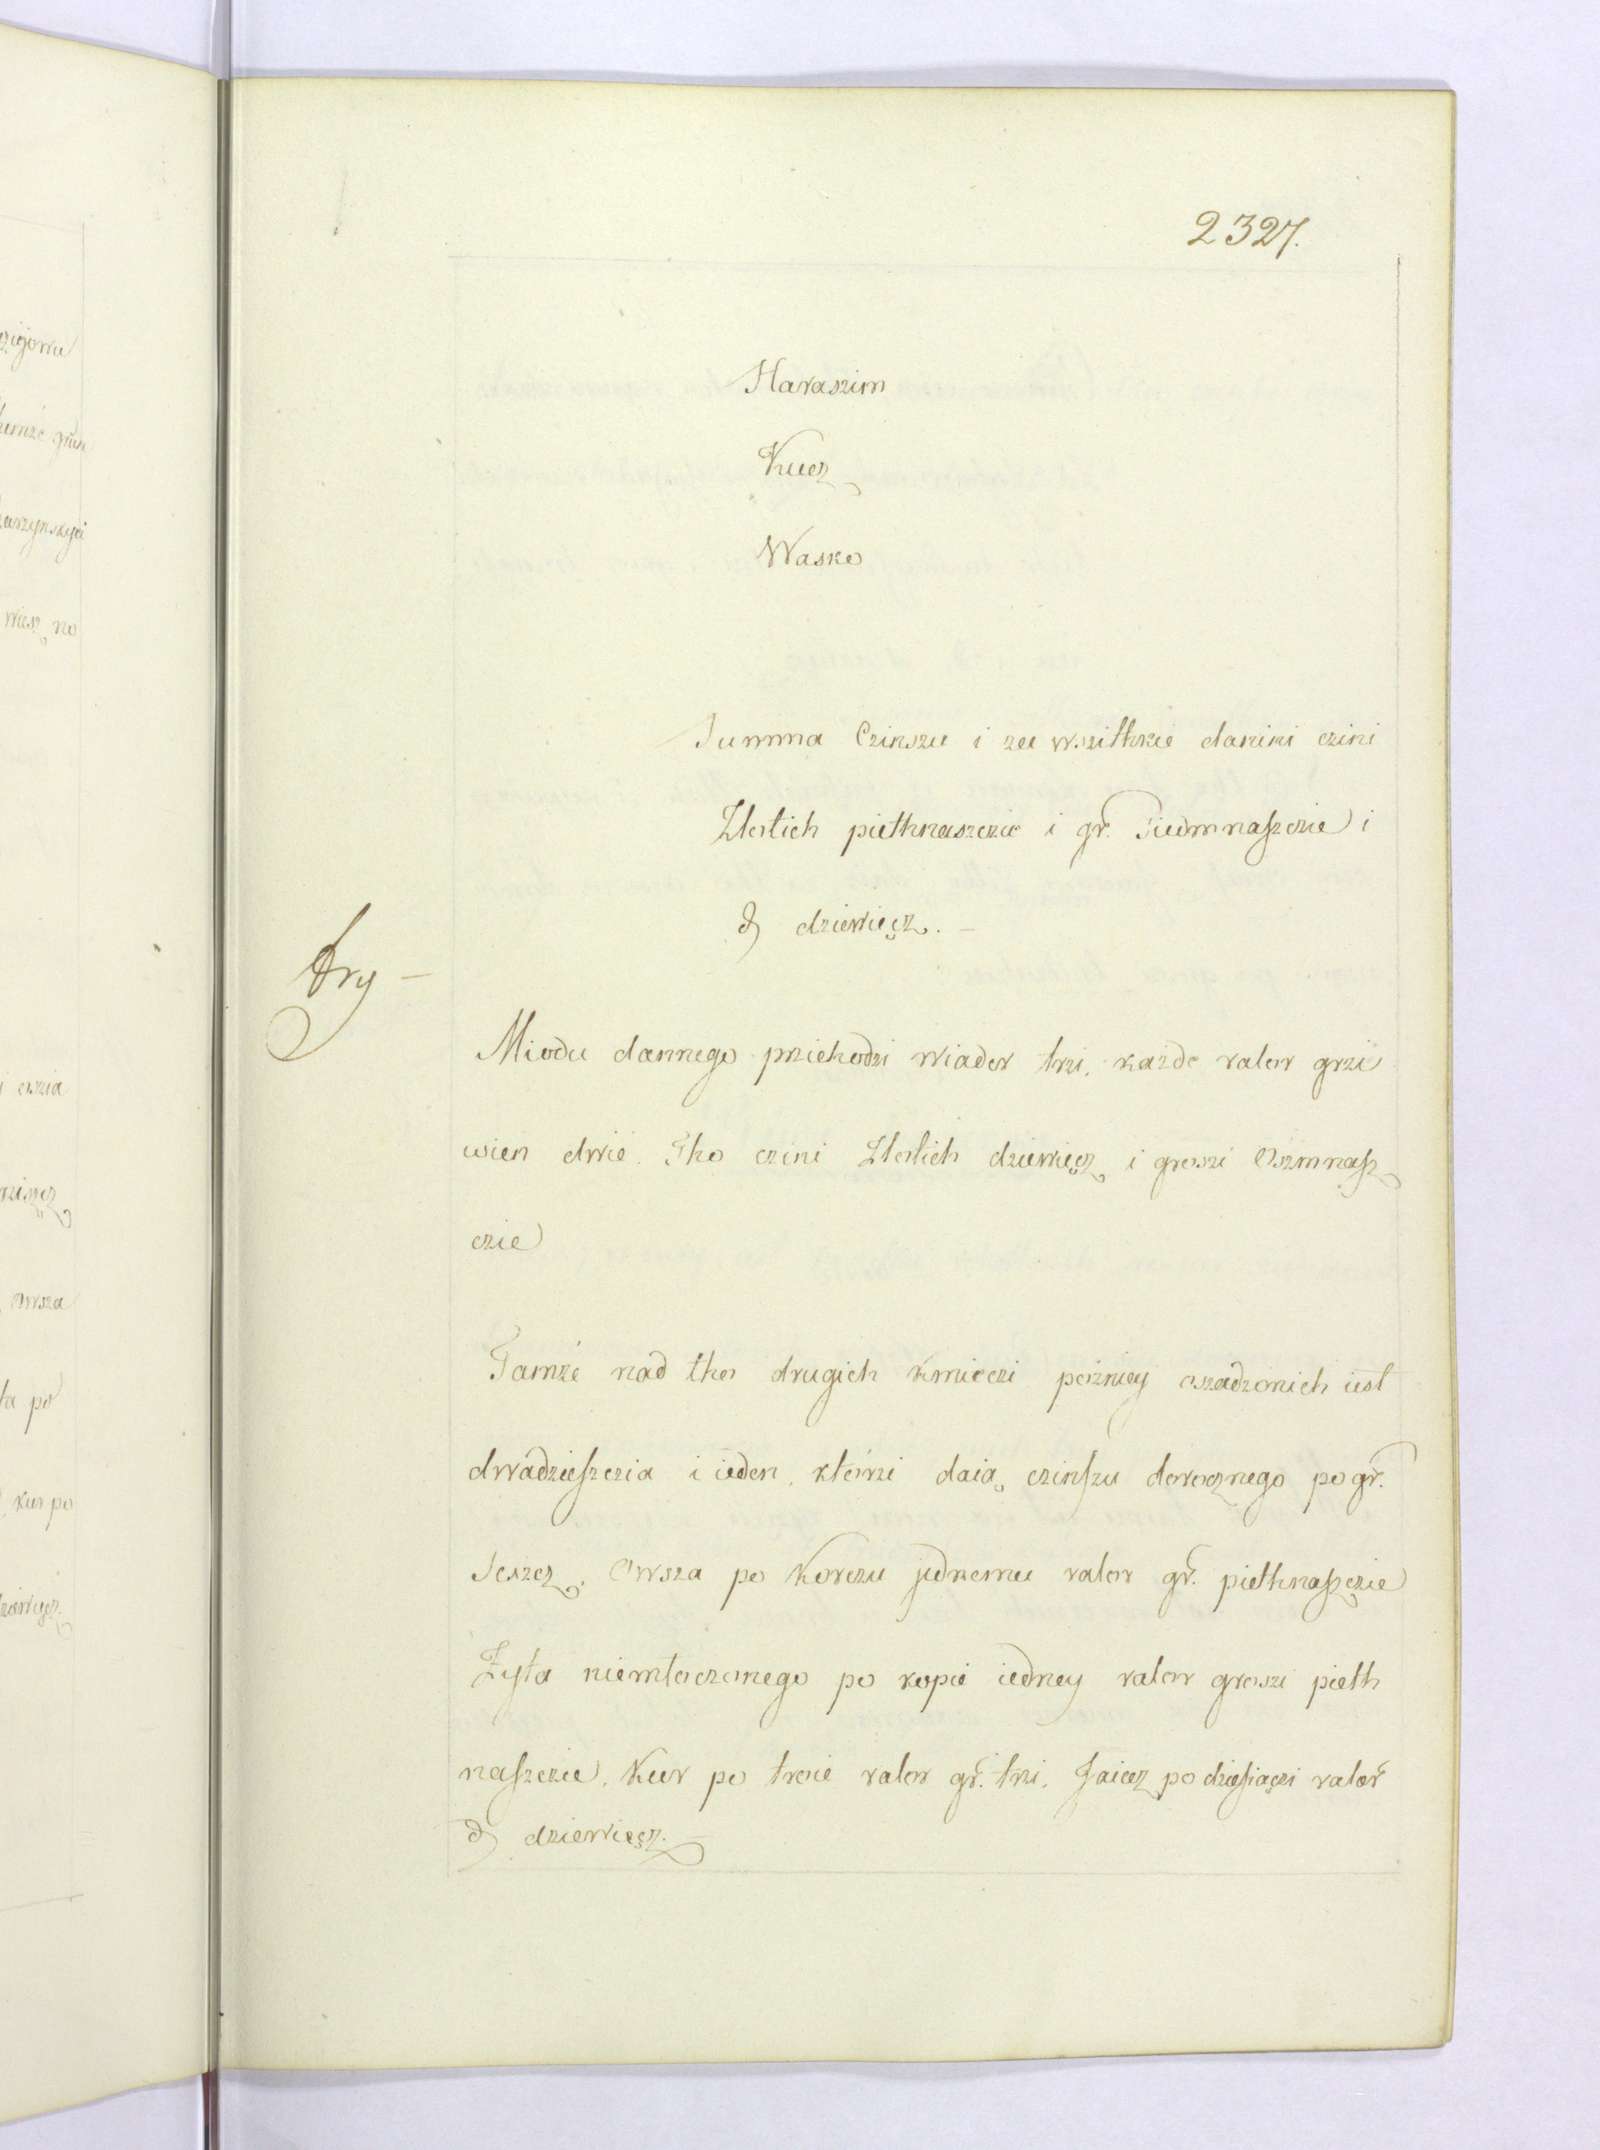 2327.
Haraszim
Kucz
Wasko
Summa Czinszu i za wszitkie danini czini
Zlotich piethnaszczie i gr. Siedmnaszczie i
d dziewięcz. —
try —
Miodu dannego przichodzi wiader trzi, każde valor grzi
wien dwie. Tho czini Zlotich dziewięcz i groszi Oszmnasz
czie
Tamże nad tho drugich kmieczi pożniey oszadzonich iest
dwadzieszczia i ieden, którzi daią czinszu dorocznego po gr.
Seszcz. Owsza po Korczu jednemu valor gr. piethnaszczie
Żyta niemłoczonego po kopie iedney valor groszi pieth
naszczie. Kur po troie valor gr. trzi. Jaiecz po dziesiączi valor
d dziewięcz.
zigowu
wiesz no
i owsza
owsza
ta po
kur po
dziewięcz.